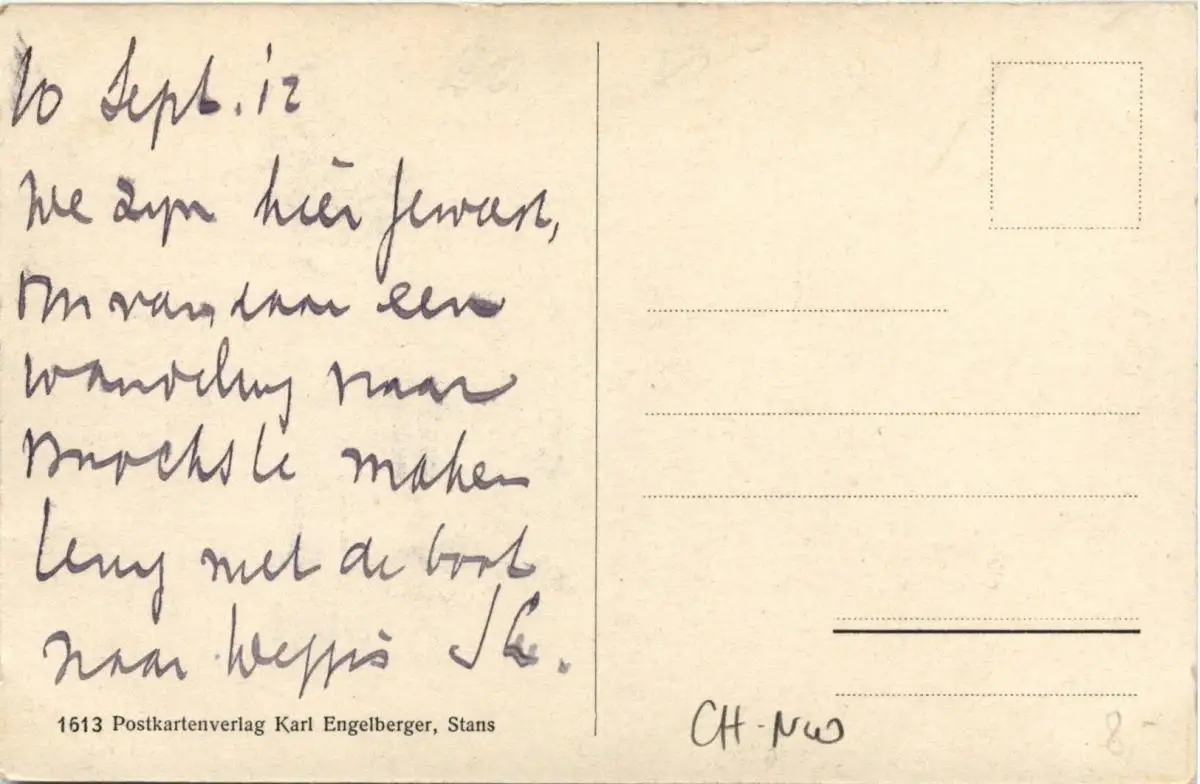 10 Sept. 12
We zijn hier geweest,
om van daar een
wandeling naar
te maken
terug met de boot
naar Weggis
1613 Postkartenverlag Karl Engelberger, Stans
CH-NW
8-